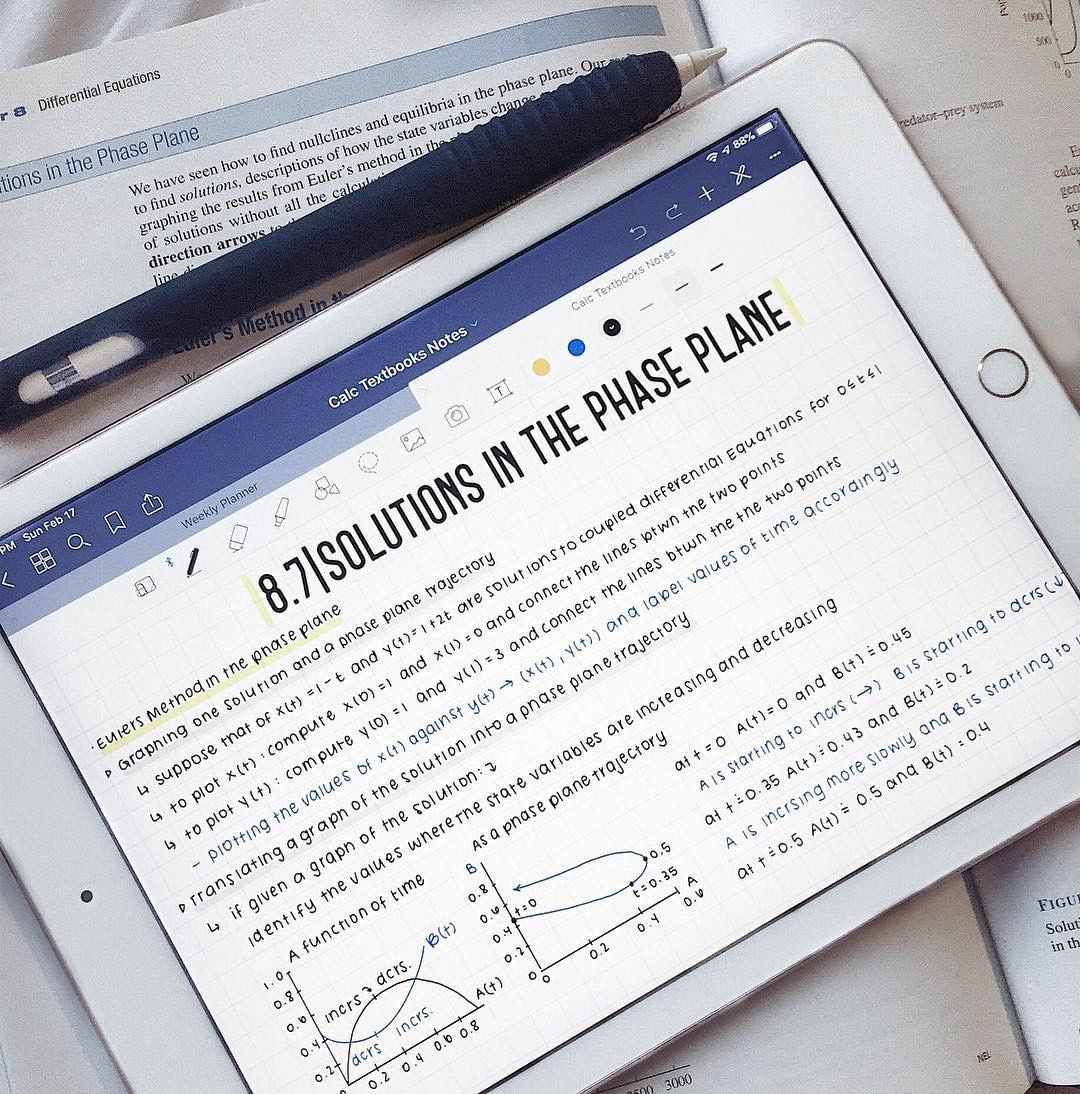 r 8 Differential Equations
tions in the Phase Plane
We have seen how to find nullclines and equilibria in the phase plane. Our
to find solutions, descriptions of how the state variables change
graphing the results from Euler's method in the
of solutions without all the
direction arrows
line
Euler's Method in
1000
500
0
0
redator–prey system
PM Sun Feb 17
88%
Calc Textbooks Notes
Weekly Planner
Calc Textbooks Notes
T
8.7|SOLUTIONS IN THE PHASE PLANE
Eulers Method in the phase plane
Graphing one solution and a phase plane trajectory
↳ suppose that of x(t) = 1 - t and y(t) = 1 + 2t are solutions to coupled differential Equations for 0≤t≤1
↳ to plot x(t) : compute x(0) = 1 and x(1) = 0 and connect the lines btwn the two points
↳ to plot y(t) : compute y(0) = 1 and y(1) = 3 and connect the lines btwn the the two points
- plotting the values of x(t) against y(t) → (x(t), y(t)) and label values of time accordingly
Translating a graph of the solution into a phase plane trajectory
↳ if given a graph of the solution:
identify the values where the state variables are increasing and decreasing
A function of time
As a phase plane trajectory
1.0
0.8
0.6
0.4
0.2
0
0.2 0.4 0.6 0.8
incrs
dcrs.
dcrs
incrs.
B(t)
A(t)
B
0.8
0.6
0.4
0.2
0
0
0.2
0.4
0.6
A
t=0
t=0.35
0.5
at t = 0 A(t) = 0 and B(t) ≐ 0.45
A is starting to incrs (→) B is starting to dcrs (↓
at t ≐ 0.35 A(t) ≐ 0.43 and B(t) ≐ 0.2
A is incrsing more slowly and B is starting to
at t = 0.5 A(t) = 0.5 and B(t) = 0.4
FIGU
Solut
in th
NEL
3000